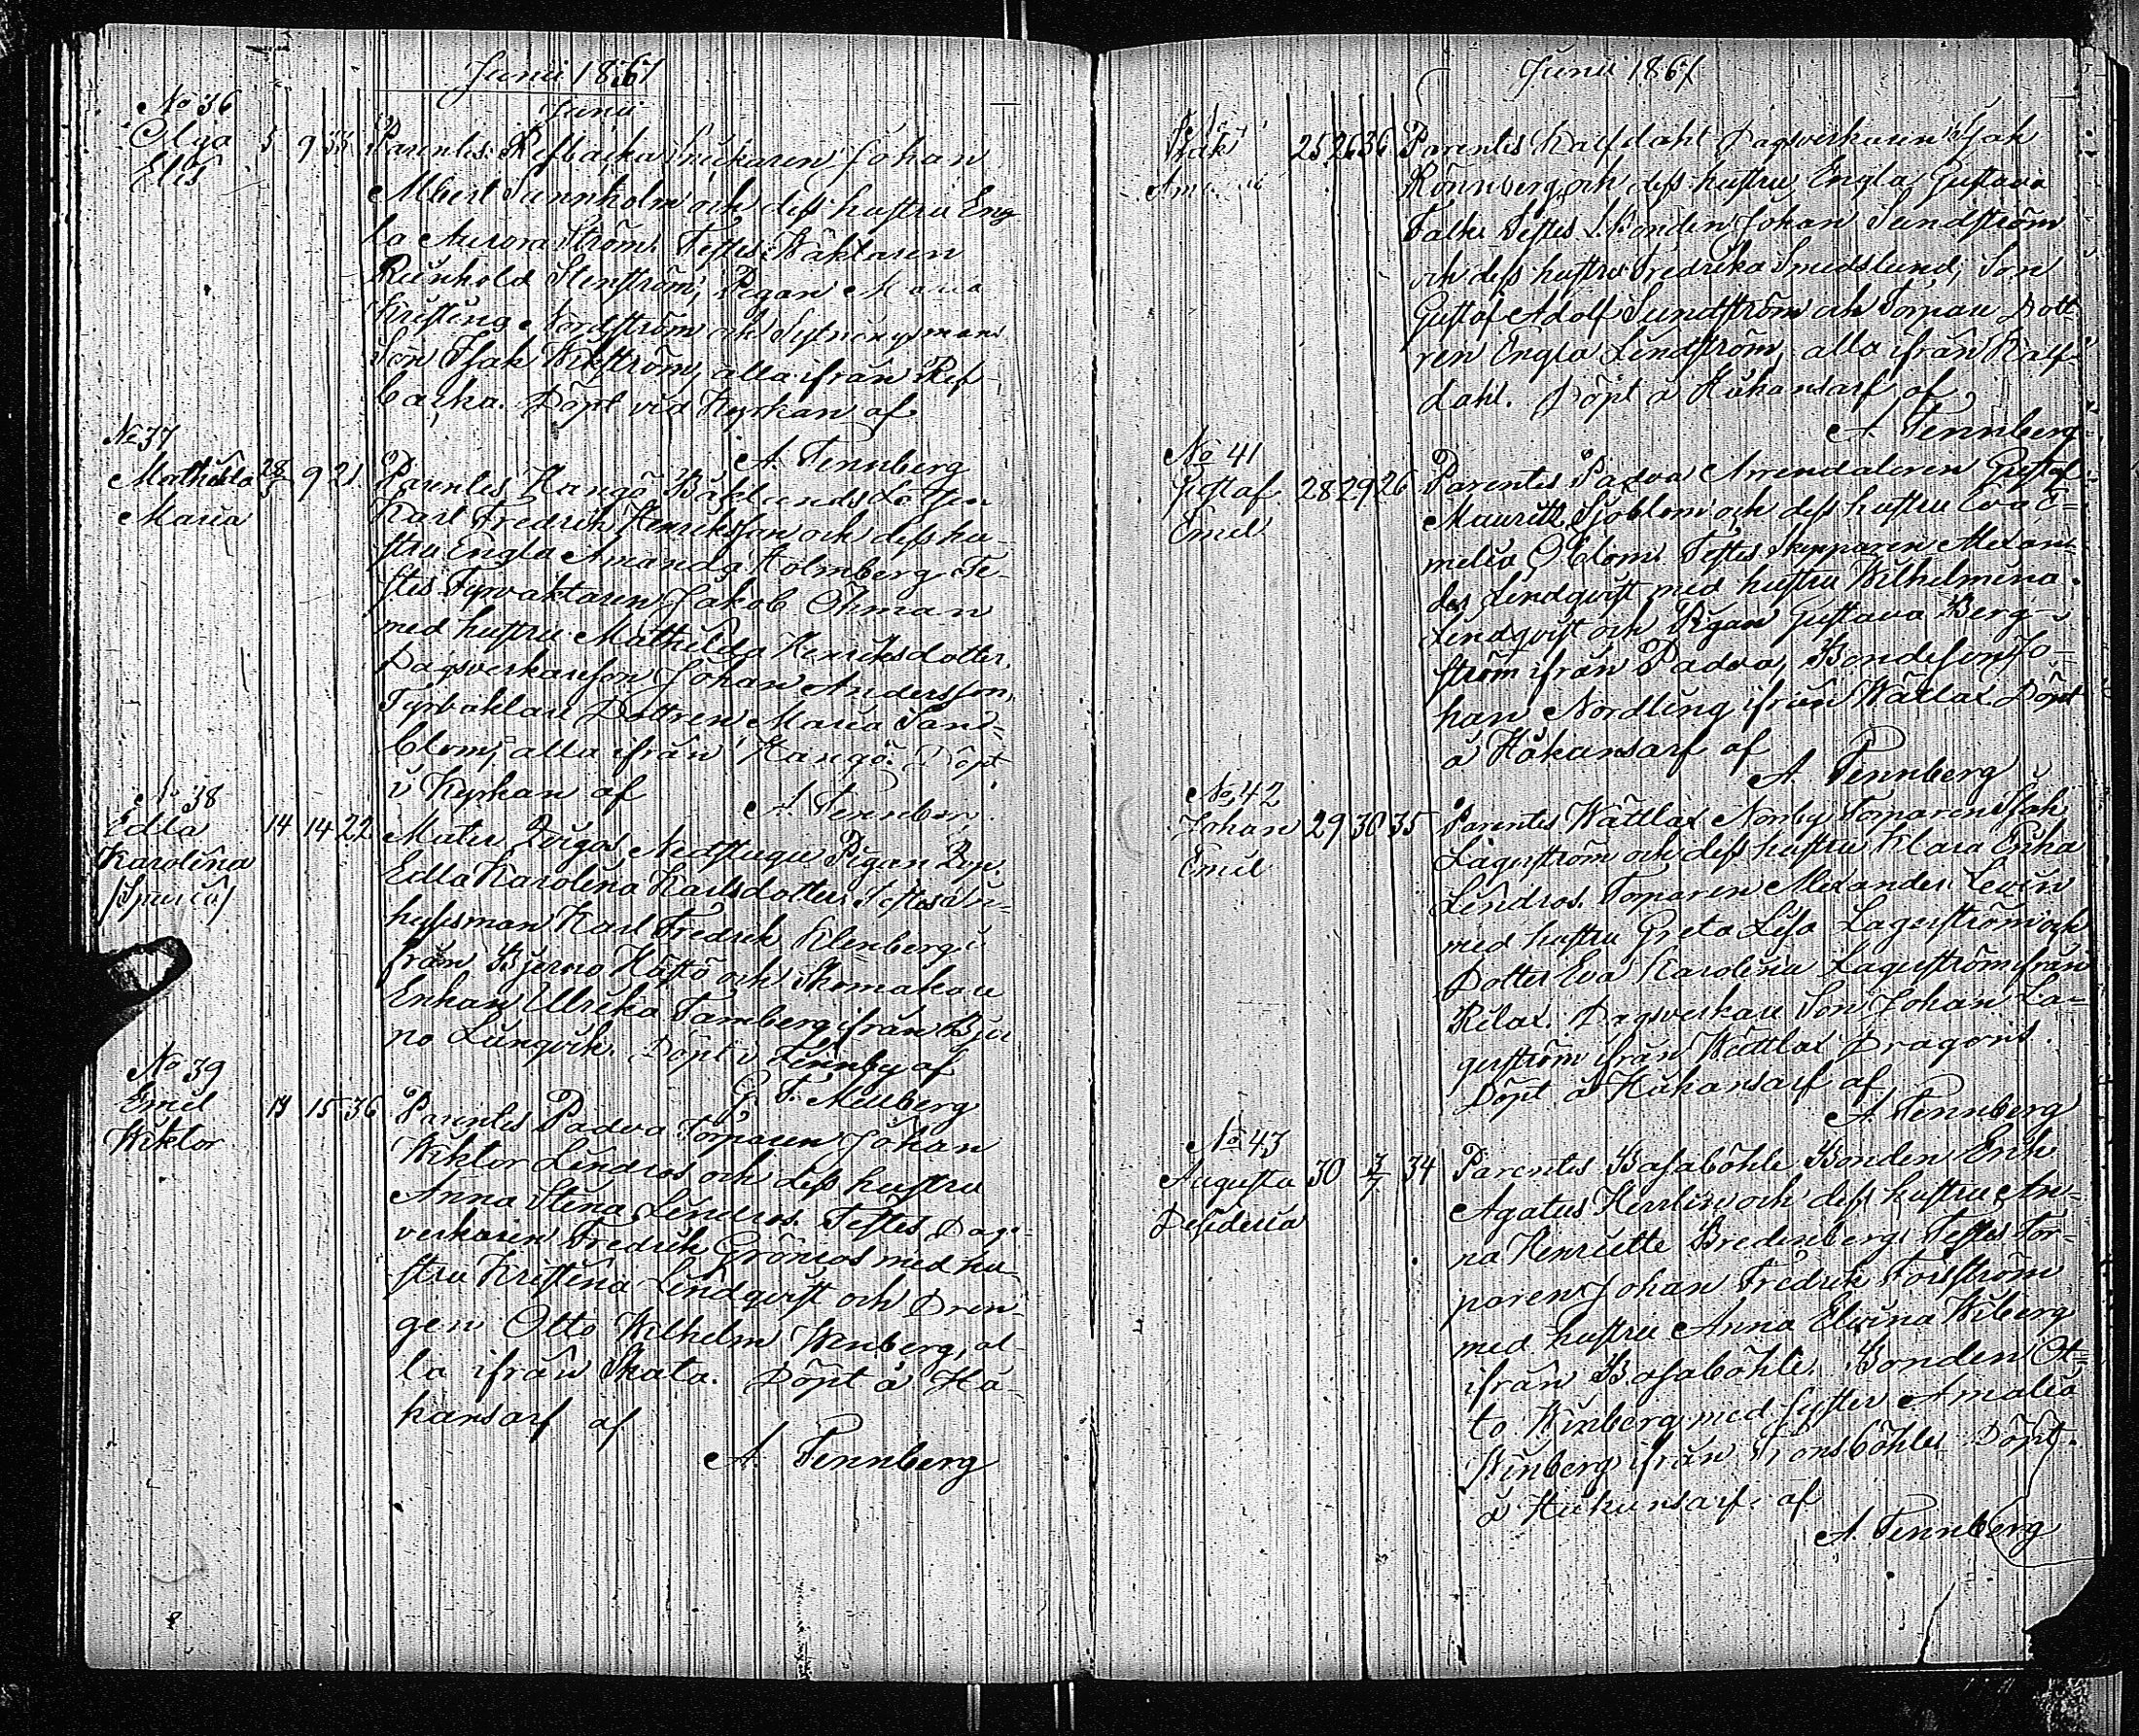 Junii 1867
Junii
No 36
Olga
Elis
5 9 33
Parentes Refbacka Snickaren Johan
Albert Sunnholm och dess hustru Eng-
la Aurora Ström. Testes: Wäktaren
Reinhold Stenström, Pigan Maria
Kristina Nordström och
Son Isak Wikström, alla ifrån Ref-
backa. Döpt vid Kyrkan af
A. Tennberg
No 37
Mathilda
Maria
28/5 9 21
Parentes Hangö Båklands Lotsen
Karl Fredrik Henriksson och dess hu-
stru Engla Amanda Holmberg. Te-
stes Fyrvaktaren Jakob Öhman
med hustru Mathilda Henriksdotter,
Dagsverkareson Johan Andersson,
Fyrvaktare Dottren Maria Sand-
blom, alla ifrån Hangö. Döpt
i Kyrkan af
A. Tennberg
No 38
Edla
Karolina
/Spuria/
14 14 22
Mater Nedstugu Pigan
Edla Karolina Karlsdotter. Testes:
hysesman Karl Fredrik Klenberg i-
från Bjerno Höstö och Skomakare
Enkan Ulrika Tamberg ifrån Bjer-
no Lungvik. Döpt i Finnby af
G. F. Moliberg
No 39
Emil
Wiktor
14 15 36
Parentes Padva Torparen Johan
Wiktor Lindros och dess hustru
Anna Stina Lindros. Testes Dags-
verkaren Fredrik Grönros med hu-
stru Kristina Lindqvist och Dren-
gen Otto Wilhelm Wenberg, al-
la ifrån Skata. Döpt å Hå-
kansarf af
A. Tennberg
Junii 1867
Isak
25 26 36
Parentes Kalfdahl Dagsverkaren Isak
Rönnberg och dess hustru Engla Gustava
Falk. Testes Bonden Johan Sundström
och dess hustru Fredrika Smedslund, Son
Gustaf Adolf Sundström och Torpare Dott-
ren Engla Lindström, alla ifrån Kalf-
dahl. Döpt å Håkansarf af
A. Tennberg
No 41
Gustaf
Emil
28 29 26
Parentes Padva Arrendatoren Gustaf
Mauritz Sjöblom och dess hustru Eva E-
melia Öblom. Testes Skepparen Alexan-
der Lindqvist med hustru Wilhelmina
Lindqvist och Pigan Gustava Berg-
ström ifrån Padva, Bondeson Jo-
han Nordling ifrån Wättlax. Döpt
å Håkansarf af
A. Tennberg
No 42
Johan
Emil
29 30 35
Parentes Wättlax Norrby Torparen Isak
Laguström och dess hustru Klara Erika
Lindros. Torparen Alexander Levin
med hustru Greta Lisa Laguström och
Dotter Eva Karolina Laguström ifrån
Rilax. Dagsverkare Son Johan La-
guström ifrån Wättlax Dragons.
Döpt å Håkansarf af
A. Tennberg
No 43
Augusta
Desideria
30 3/7 34
Parentes Basaböhle Bonden Erik
Agatus Herrlin och dess hustru An-
na Henriette Bredenberg. Testes Tor-
paren Johan Fredrik Forsström
med hustru Anna Elvina Wiberg
ifrån Basaböhle. Bonden Ot-
to Winberg med syster Amalia
Winberg ifrån Tronsböhle. Döpt
å Håkansarf af
A. Tennberg